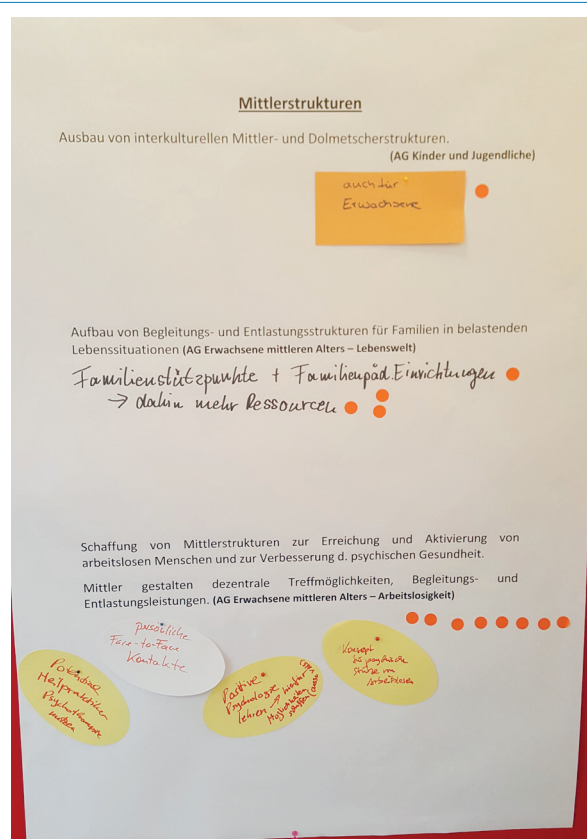 Mittlerstrukturen
Ausbau von interkulturellen Mittler- und Dolmetscherstrukturen.
(AG Kinder und Jugendliche)
auch für
Erwachsene
Aufbau von Begleitungs- und Entlastungsstrukturen für Familien in belastenden
Lebenssituationen (AG Erwachsene mittleren Alters – Lebenswelt)
Familienstützpunkte + Familienpäd. Einrichtungen
→ dahin mehr Ressourcen
Schaffung von Mittlerstrukturen zur Erreichung und Aktivierung von
arbeitslosen Menschen und zur Verbesserung d. psychischen Gesundheit.
Mittler gestalten dezentrale Treffmöglichkeiten, Begleitungs- und
Entlastungsleistungen. (AG Erwachsene mittleren Alters – Arbeitslosigkeit)
persönliche
Face-to-Face
Kontakte
Heilpraktiker
nutzen
Positive
Psychologie
lehren → 
Möglichkeiten
schaffen
Konzept
Arbeitslosen